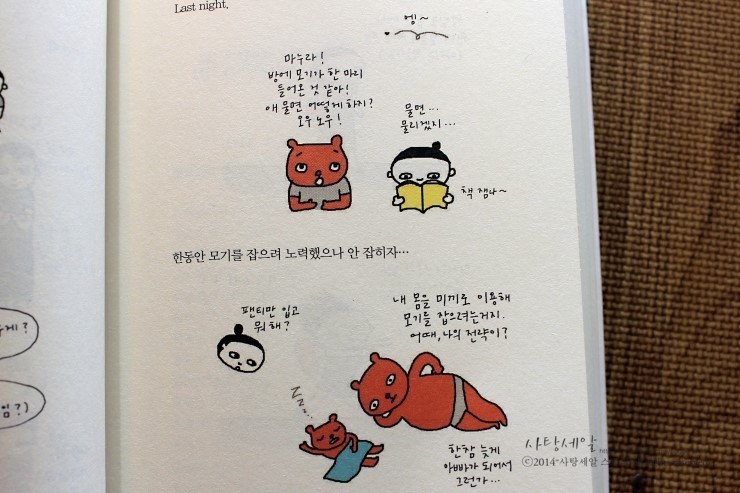 Last night.
엥~
마누라!
방에 모기가 한 마리
들어온 것 같아!
애 물면 어떻게 하지?
오우 노우!
물면...
물리겠지...
책 잼나~
한동안 모기를 잡으려 노력했으나 안 잡히자…
팬티만 입고
뭐해?
내 몸을 미끼로 이용해
모기를 잡으려는거지.
어때, 나의 전략이?
z z z...
한참 늦게
아빠가 되어서
그런가...
게?
임?)
사탕세알
©2014 사탕세알 스